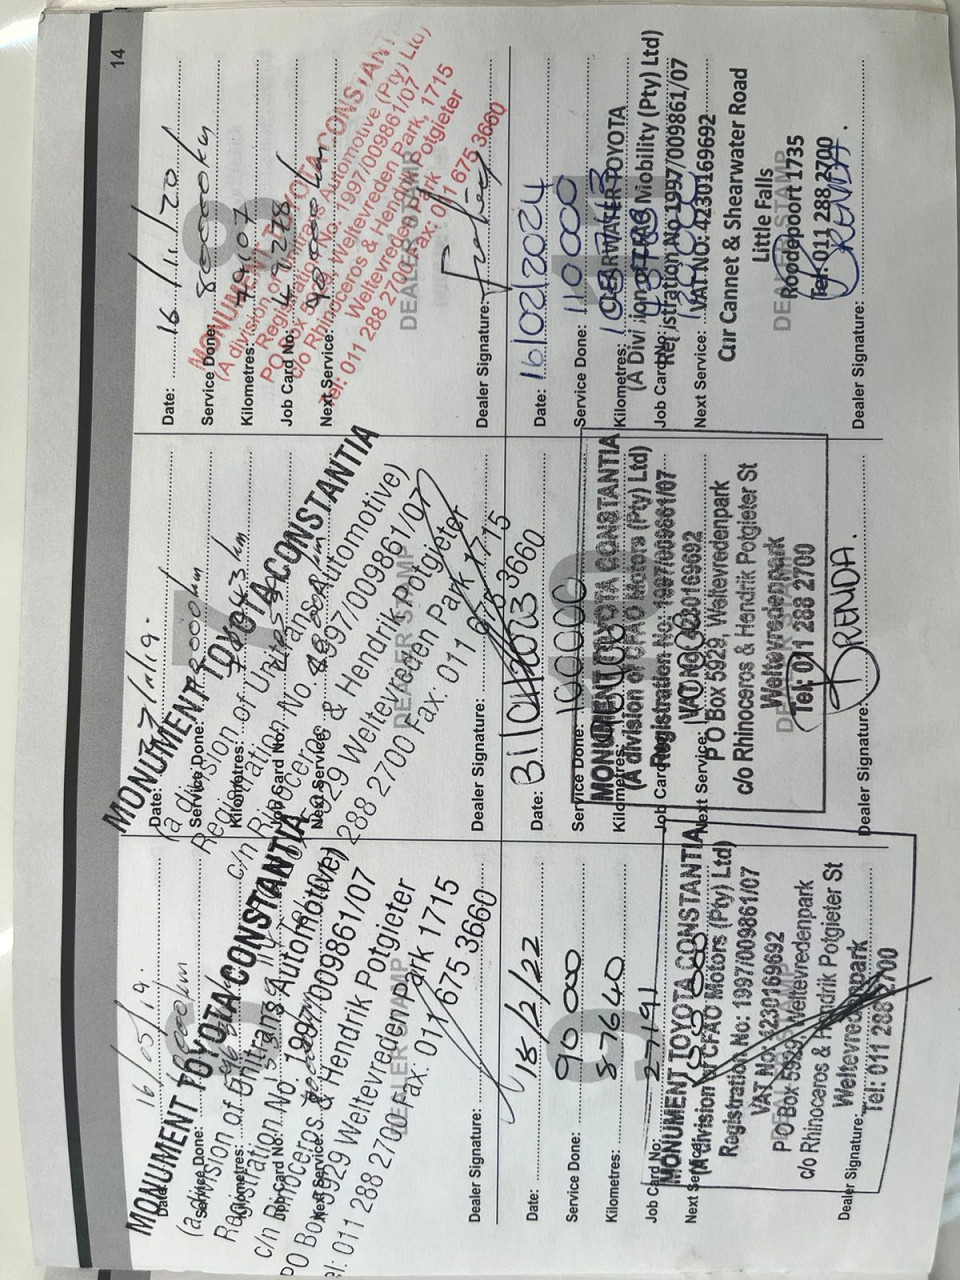 14
16/05/19.
Date:
Service Done:
Kilometres:
Job Card No:
Next Service:
MONUMENT TOYOTA CONSTANTIA
(a division of Unitrans Automotive)
Registration No. 1997/009861/07
c/n Rhinoceros & Hendrik Potgieter
PO Box 5929 Weltevreden Park 1715
Tel: 011 288 2700 Fax: 011 675 3660
DEALER STAMP
Dealer Signature:
7
Date:
Service Done:
Kilometres:
Job Card No:
Next Service:
MONUMENT TOYOTA CONSTANTIA
(a division of Unitrans Automotive)
Registration No. 1997/009861/07
c/n Rhinoceros & Hendrik Potgieter
5929 Weltevreden Park 1715
288 2700 Fax: 011 675 3660
DEALER STAMP
Dealer Signature:
8
Date: 16/11/20
Service Done: 80000km
Kilometres: 79107
Job Card No:
Next Service: 90000km
MONUMENT TOYOTA CONSTANTIA
(A division of Unitrans Automotive (Pty) Ltd)
Registration No. 1997/009861/07
PO Box 5929, Weltevreden Park, 1715
c/o Rhinoceros & Hendrik Potgieter
Weltevreden Park
Tel: 011 288 2700 Fax: 011 675 3660
DEALER STAMP
Dealer Signature:
9
Date: 18/2/22
Service Done: 90 000
Kilometres: 87640
Job Card No: 27191
Next Service: 100 000
MONUMENT TOYOTA CONSTANTIA
(A division of CFAO Motors (Pty) Ltd)
Registration No: 1997/009861/07
VAT No: 4230169692
P O Box 5929, Weltevredenpark
c/o Rhinoceros & Hendrik Potgieter St
Weltevredenpark
Tel: 011 288 2700
Dealer Signature:
10
Date:
Service Done: 100000
Kilometres:
Job Card No:
Next Service:
MONUMENT TOYOTA CONSTANTIA
(A division of CFAO Motors (Pty) Ltd)
Registration No: 1997/009861/07
VAT NO: 4230169692
P O Box 5929, Weltevredenpark
c/o Rhinoceros & Hendrik Potgieter St
Weltevredenpark
Tel: 011 288 2700
Dealer Signature:
BRENDA.
Date: 16/02/2024
Service Done: 110000
Kilometres:
Job Card No:
Next Service:
CLEARWATER TOYOTA
(A Division of CFAO Mobility (Pty) Ltd)
Registration No.1997/009861/07
VAT NO: 4230169692
Cnr Cannet & Shearwater Road
Little Falls
Roodepoort 1735
Tel: 011 288 2700
DEALER STAMP
Dealer Signature:
BRENDA.